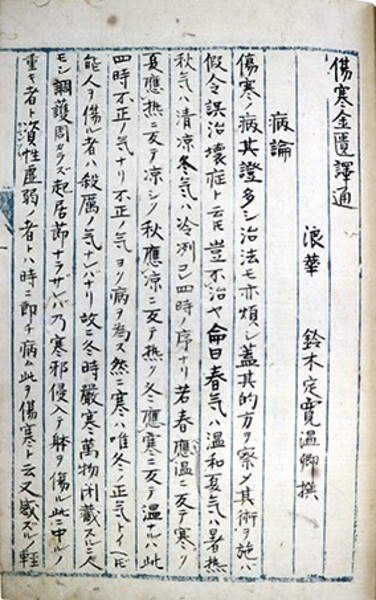 傷寒金匱譯通
浪華 鈴木定寛温卿撰
病論
傷寒ノ病其證多シ治法モ亦煩シ蓋其的方ヲ察シ其術ヲ施ハ
假令誤治壞症ト云𪜈豈不治ヤ俞曰春気ハ温和夏気ハ暑熱
秋気ハ清凉冬気ハ冷冽已四時ノ序ナリ若春應温ニ反テ寒ク
夏應熱ニ反テ凉シク秋應凉ニ反テ熱ク冬應寒ニ反テ温ナルハ此
四時不正ノ気ナリ不正ノ気ヨリ病ヲ為ス然ニ寒ハ唯冬ノ正気トイヘ𪜈
能人ヲ傷ル者ハ殺厲ノ気ナレハナリ故ニ冬時嚴寒萬物閉藏スルニ人
モシ調護周カラズ起居節ナラサレハ乃寒邪侵入テ躰ヲ傷ル此ニ中ルノ
重キ者ト資性虚弱ノ者トハ時ニ即チ病ム此ヲ傷寒ト云又感ズルノ輕